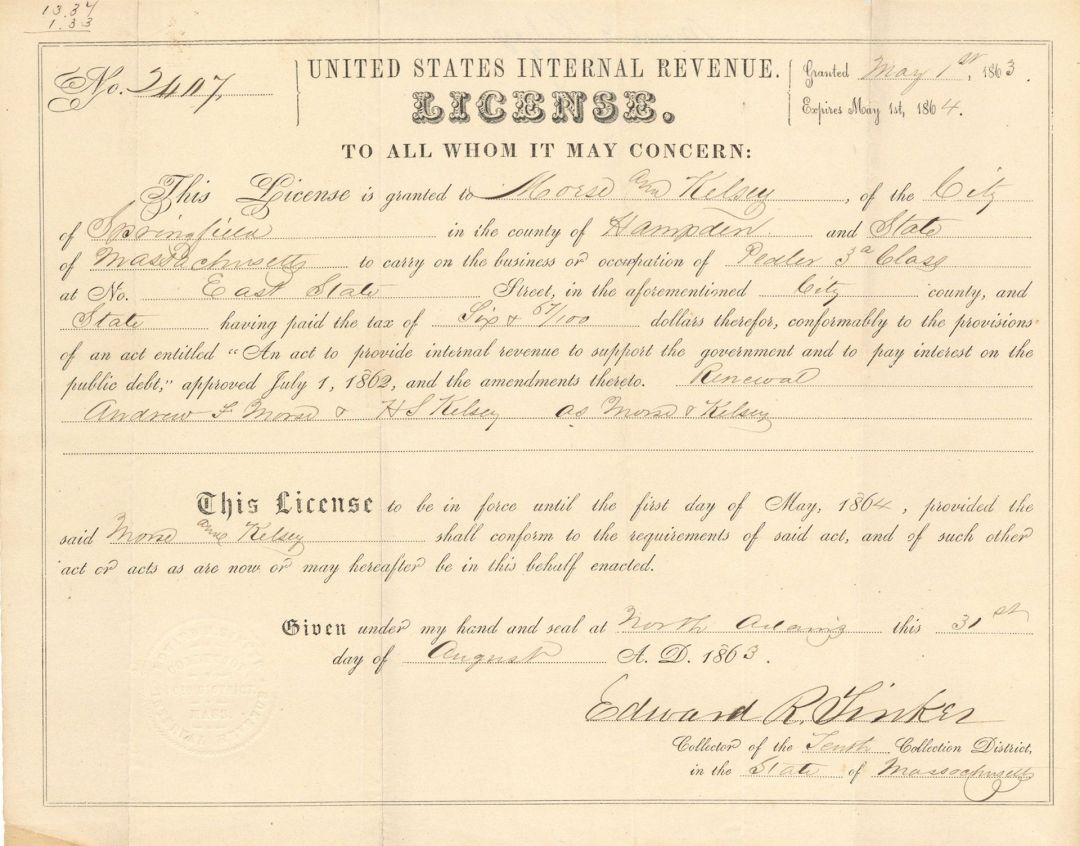 13.34
1.33
No. 2407. UNITED STATES INTERNAL REVENUE. Granted May 1st, 1863.
LICENSE. Expires May 1st, 1864.
TO ALL WHOM IT MAY CONCERN:
This License is granted to Morse and Kelsey, of the City
of Springfield in the county of Hampden and State
of Massachusetts to carry on the business or occupation of Pedler 3d Class
at No. East State Street, in the aforementioned City county, and
State having paid the tax of Six & 67/100 dollars therefor, conformably to the provisions
of an act entitled "An act to provide internal revenue to support the government and to pay interest on the
public debt," approved July 1, 1862, and the amendments thereto. Renewal
Andrew F Morse & H S Kelsey as Morse & Kelsey
This License to be in force until the first day of May, 1864, provided the
said Morse and Kelsey shall conform to the requirements of said act, and of such other
act or acts as are now or may hereafter be in this behalf enacted.
Given under my hand and seal at North Adams this 31st
day of August A. D. 1863.
Edward R. Tinker
Collector of the Tenth Collection District,
in the State of Massachusetts